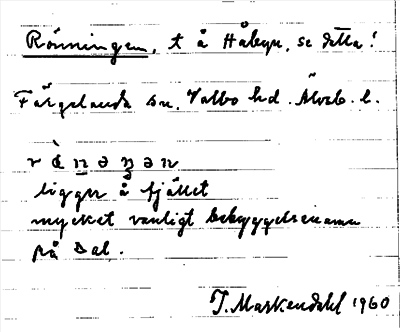 Rönningen, t å Håbyn, se detta!
Färgelanda sn. Valbo hd. Älvsb. l.
r ö̀ n ə ŋ ə n
ligger å fjället
mycket vanligt bebyggelsenamn
på Dal.
T. Markendahl 1960